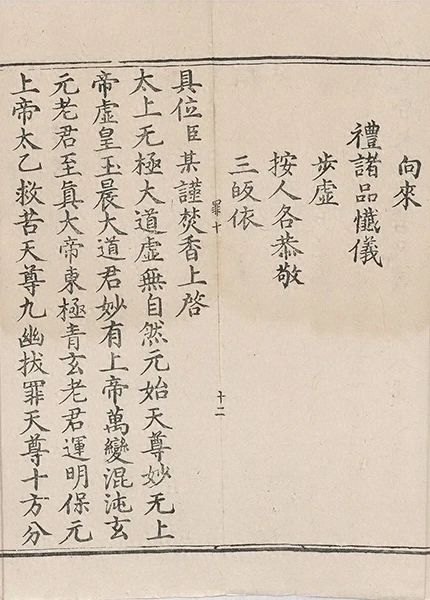 向來
禮諸品懺儀
步虛
按人各恭敬
三皈依
罪十
十二
具位臣某謹焚香上啓
太上无極大道虛無自然元始天尊妙无上
帝虛皇玉晨大道君妙有上帝萬變混沌玄
元老君至真大帝東極青玄老君運明保元
上帝太乙救苦天尊九幽拔罪天尊十方分